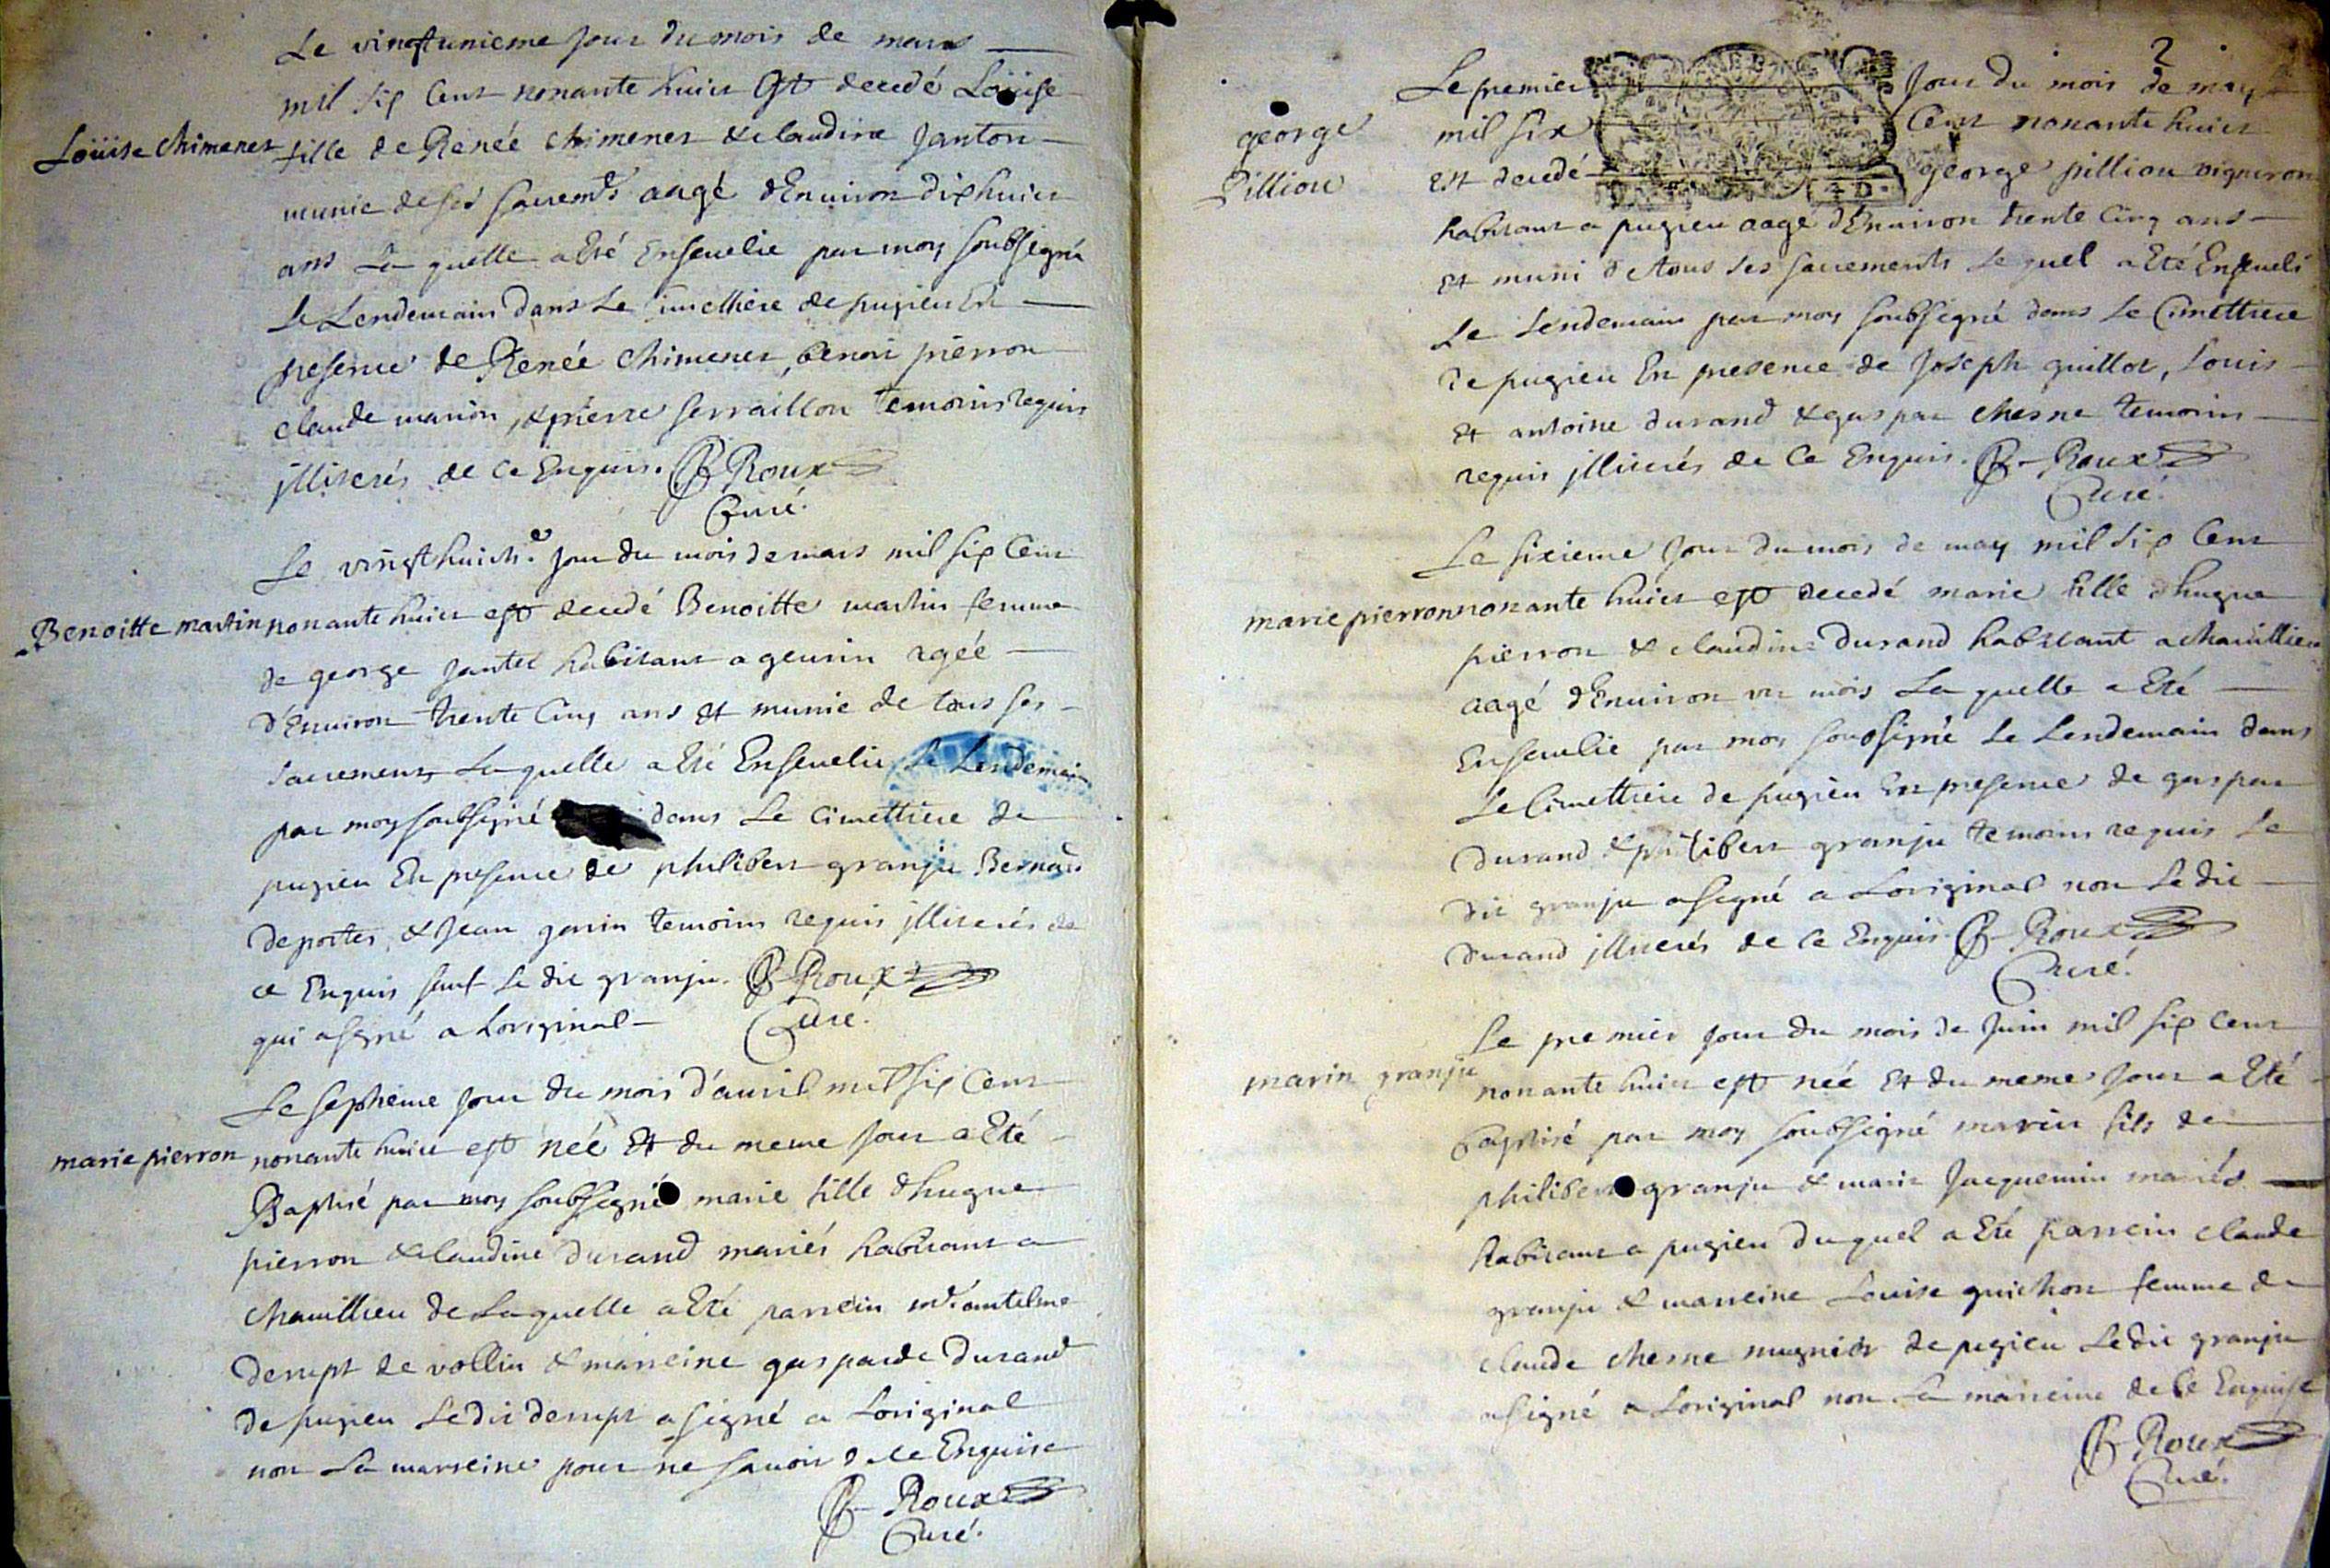 Le vingtunieme jour du mois de mars
mil six cent nonante huict est decedé Loüise
Loüise chimener
fille de Renée chimener & claudine janton
munie de ses sacremts aagé d'Environ dix huict
ans La quelle a Eté Ensevelie par moy soubsigné
le Lendemain dans Le cimettiere de pugieu En
presence de Renée chimener, benoit pierron
claude marion, & pierre serraillon temoins requis
jlliterés de ce Enquis. B Roux
Curé.
Le vingt huicte. jour du mois de mars mil six Cent
Benoitte martin
nonante huict est decedé Benoitte martin femme
de george jantet habitant a geurin agée
d'Environ trente cinq ans et munie de tous ses
sacrements La quelle a Eté Ensevelie Le Lendemain
par moy soubsigné dans Le cimettiere de
pugieu En presence de philibert granju Bernard
deportes, & jean garin temoins requis jlliterés de
ce Enquis sauf Le dit granju. B Roux
qui a signé a Loriginal
Curé.
Le septieme jour du mois d'avril mil six Cent
marie pierron
nonante huict est neé Et du meme jour a Eté
Baptisé par moy soubsigné marie fille d'hugue
pierron & claudine durand mariés habitant a
chavillieu de Laquelle a Eté parrein mr. antelme
derupt de vollin & marreine gasparde durand
de pugieu Le dit derupt a signé a Loriginal
non La marreine pour ne savoir de ce Enquise
B Roux
Curé.
2
Le premier jour du mois de may
george
pillion
mil six Cent nonante huict
est decedé george pillion vigneron
habitant a pugieu aagé d'Environ trente Cinq ans
et muni de tous ses sacrements Le quel a Eté Enseveli
Le Lendemain par moy soubsigné dans Le Cimettiere
de pugieu En presence de joseph guillot, Louis
et antoine durand & gaspar chesne temoins
requis jlliterés de ce Enquis. B Roux
Curé.
Le sixieme jour du mois de may mil six Cent
marie pierron
nonante huict est decedé marie fille d'hugue
pierron & claudine durand habitant a chavillieu
aagé d'Environ un mois La quelle a Eté
Ensevelie par moy soubsigné Le Lendemain dans
Le Cimettiere de pugieu En presence de gaspar
durand & philibert granju temoins requis Le
dit granju a signé a Loriginal non Le dit
durand jlliterés de ce Enquis. B Roux
Curé.
Le premier jour du mois de juin mil six Cent
marin granju
nonante huict est née Et du meme jour a Eté
baptisé par moy soubsigné marin fils de
philibert granju & marie jacquemin mariés
habitant a pugieu duquel a Eté parrein claude
granju & marreine Louise guichon femme de
claude chesne mugnier de pugieu Le dit granju
a signé a Loriginal non La marreine de ce Enquise
B Roux
Curé.